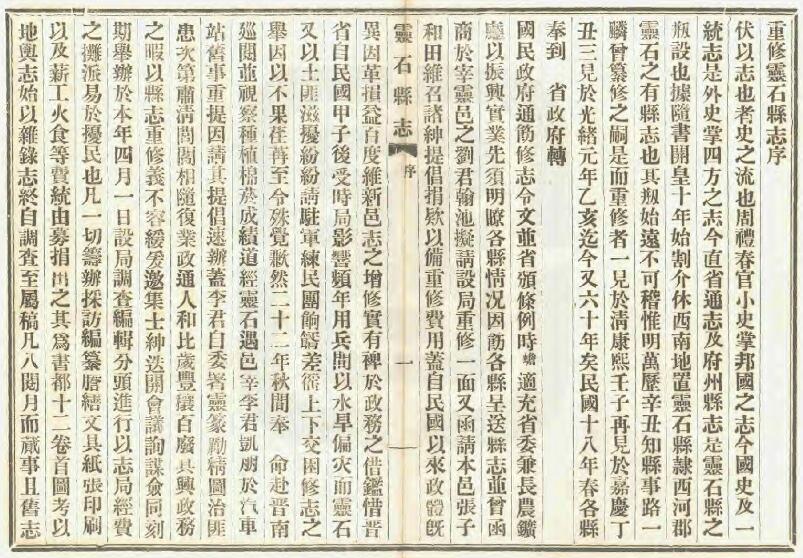 重修靈石縣志序
伏以志也者史之流也周禮春官小史掌邦國之志今國史及一
統志是外史掌四方之志今直省通志及府州縣志是靈石縣之
瓶設也據隨書開皇十年始割介休西南地置靈石縣隸西河郡
靈石之有縣志也其瓶始遠不可稽惟明萬歷辛丑知縣事路一
麟曾纂修之嗣是而重修者一見於清康熙壬子再見於嘉慶丁
丑三見於光緒元年乙亥迄今又六十年矣民國十八年春各縣
奉到 省政府轉
國民政府通飭修志令文並省頒條例時蟾適充省委兼長農鑛
廳以振興實業先須明瞭各縣情况因飭各縣呈送縣志並曾函
商於宰靈邑之劉君翰池擬請設局重修一面又函請本邑張子
和田維召諸紳提倡捐欵以備重修費用蓋自民國以來政體旣
靈石縣志 序 一
異因革損益百度維新邑志之增修實有裨於政務之借鑑惜晋
省自民國甲子後受時局影響頻年用兵間以水旱偏灾而靈石
又以土匪滋擾紛紛請駐軍練民團餉糈差徭上下交困修志之
舉因以不果荏苒至今殊覺歉然二十二年秋間奉 命赴晋南
廵閱並視察種植棉菸成績道經靈石遇邑宰李君凱朋於汽車
站舊事重提因請其提倡速辦蓋李君自委署靈篆勵精圖治匪
患次第肅清閭閻相隨復業政通人和比歲豐穰百廢具興政務
之暇以縣志重修義不容緩爰邀集士紳迭開會議詢謀僉同刻
期舉辦於本年四月一日設局調查編輯分頭進行以志局經費
之攤派易於擾民也凡一切籌辦採訪編纂謄繕文具紙張印刷
以及薪工火食等費統由募捐出之其爲書都十二卷首圖考以
地輿志始以雜錄志終自調查至屬稿凡八閱月而蕆事且舊志